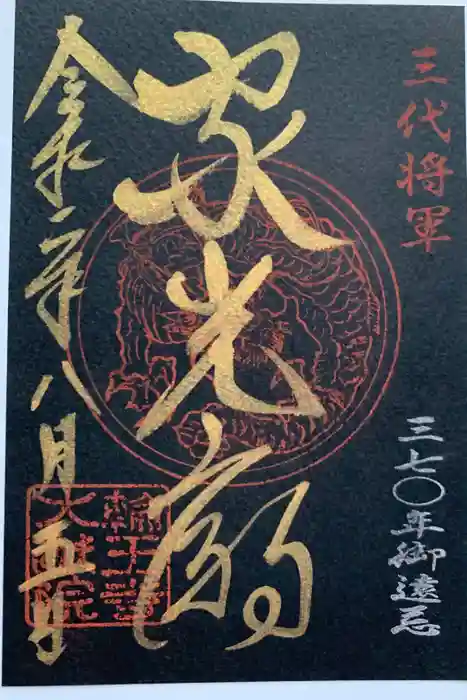 三代将軍
三七〇年御遠忌
家光廟
令和二年八月五日
輪王寺
大猷院